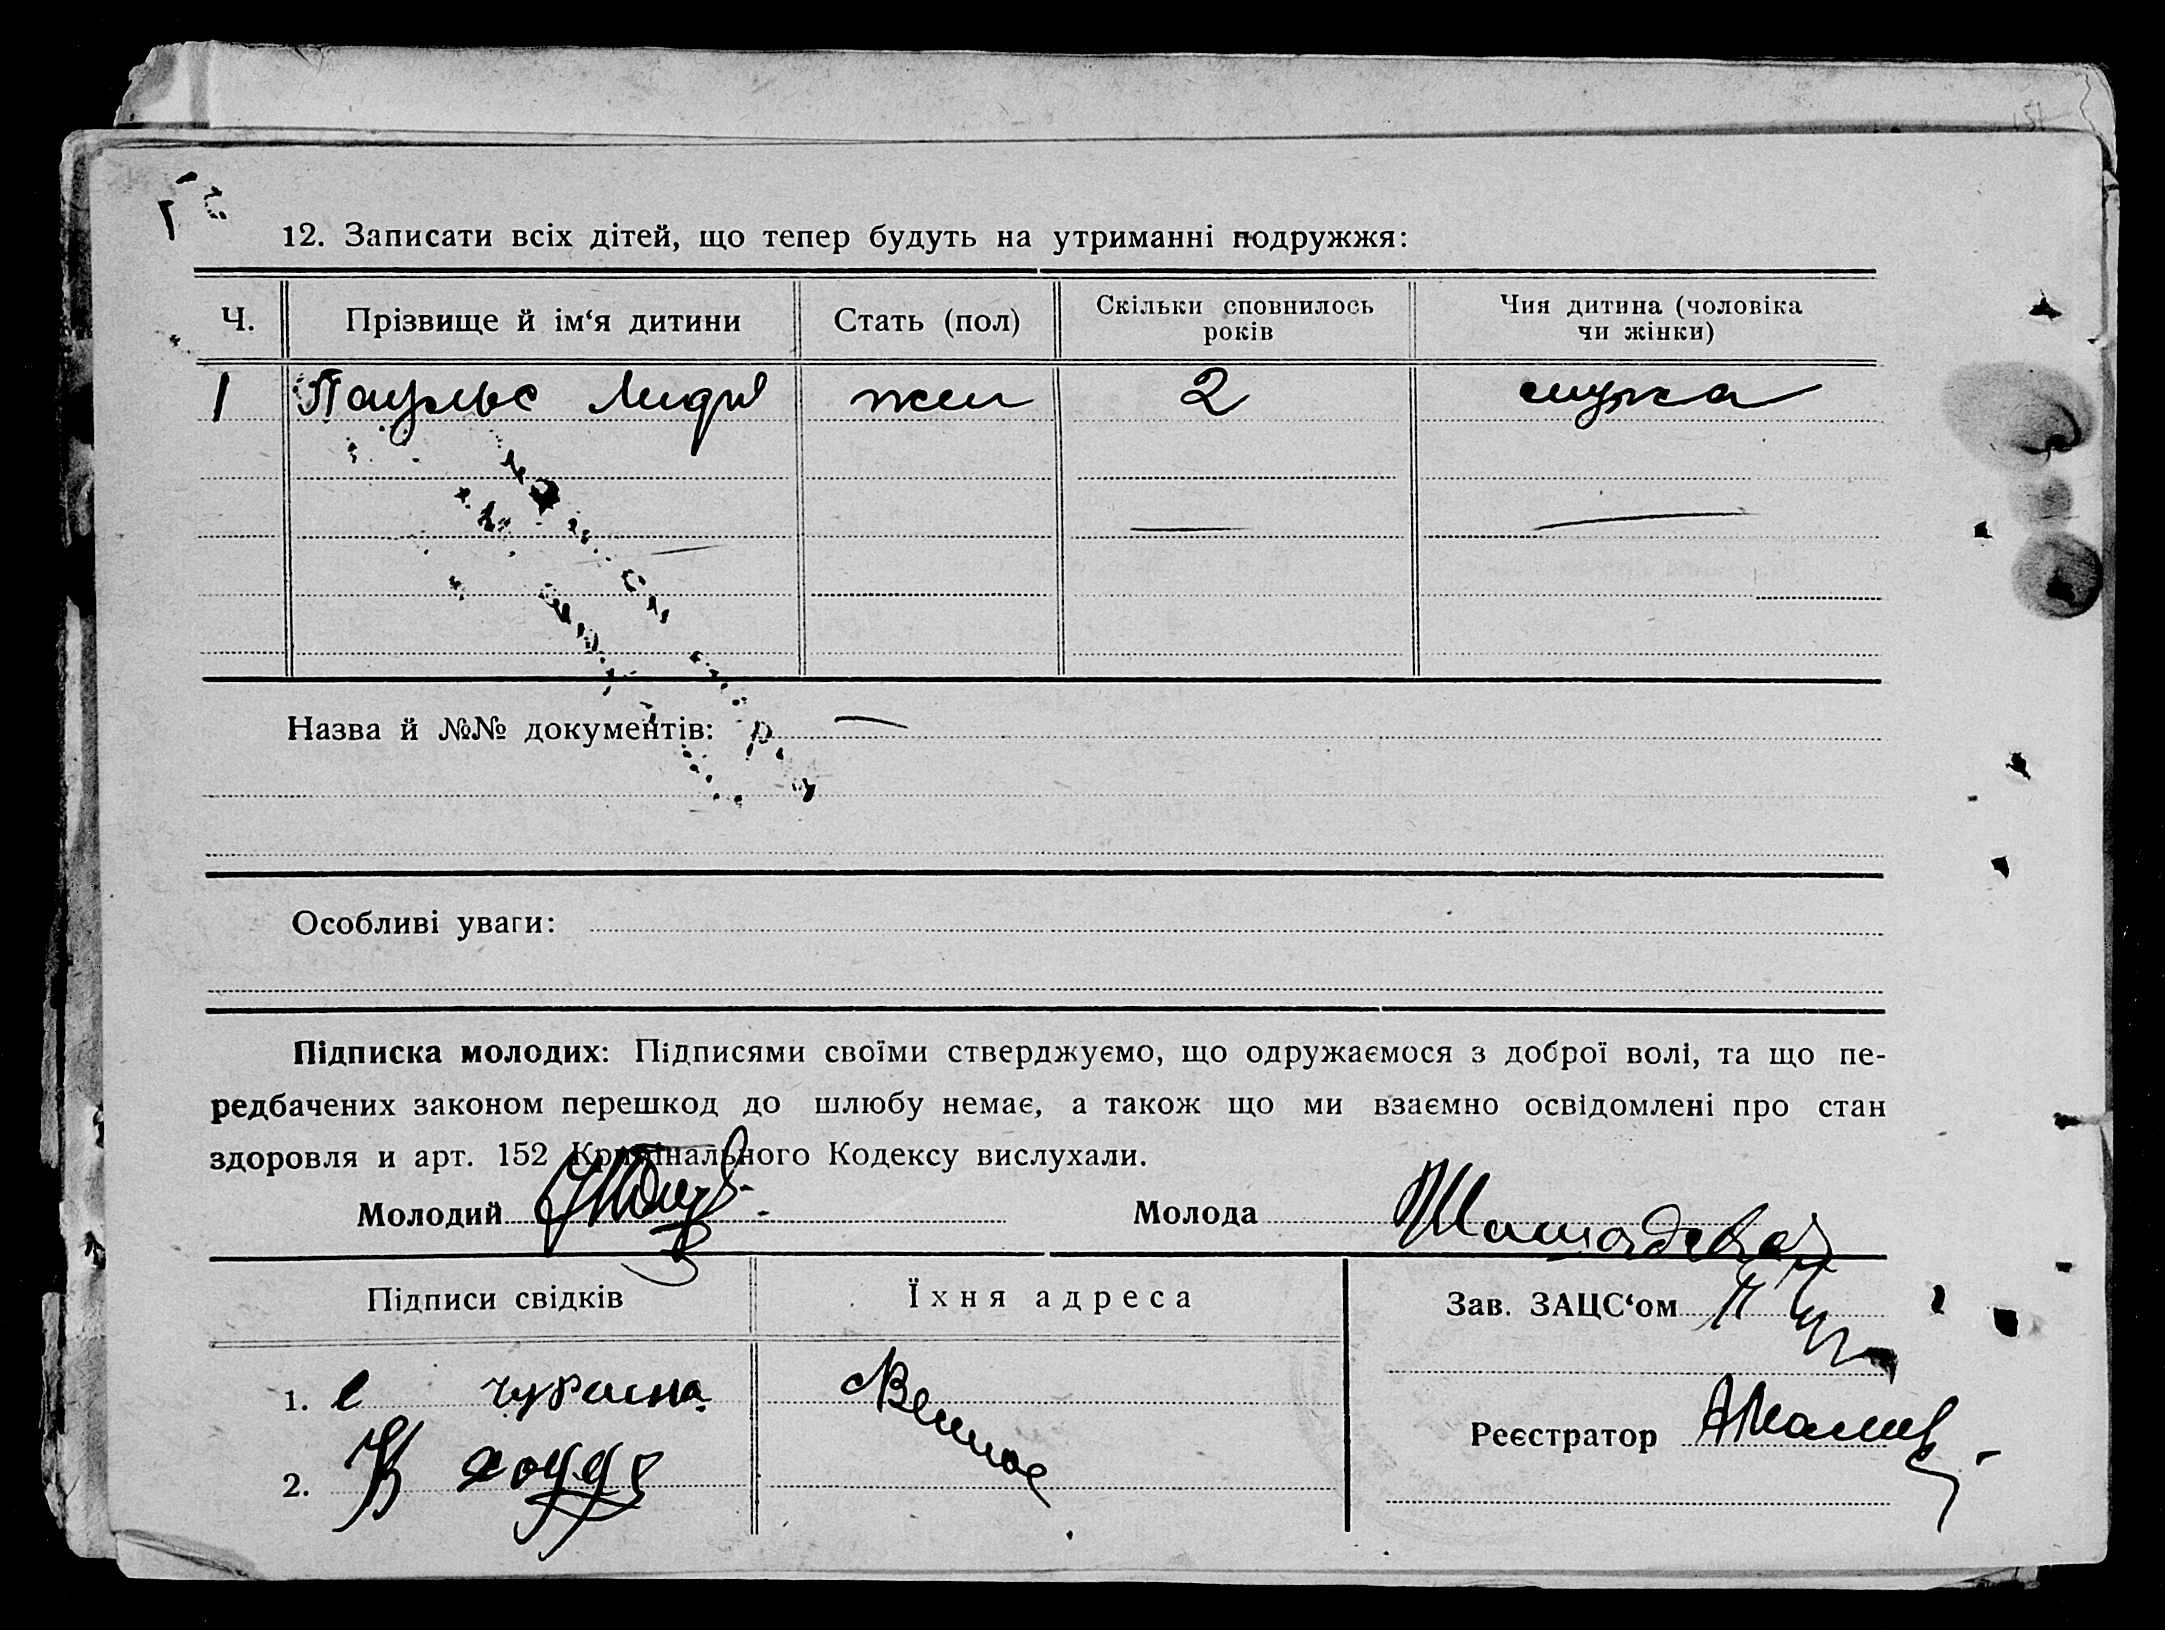 12. Записати всіх дітей, що тепер будуть на утриманні подружжя:
Ч. Прізвище й ім‘я дитини Стать (пол) Скільки сповнилось років Чия дитина (чоловіка чи жінки)
1 Паульс Лидия жен 2 мужа
Назва й №№ документів:
Особливі уваги:
Підписка молодих: Підписями своїми стверджуємо, що одружаємося з доброї волі, та що пе-
редбачених законом перешкод до шлюбу немає, а також що ми взаємно освідомлені про стан
здоровля и арт. 152 Кримінального Кодексу вислухали.
Молодий Молода
Підписи свідків Їхня адреса Зав. ЗАЦС‘ом
1.
Реєстратор
2.